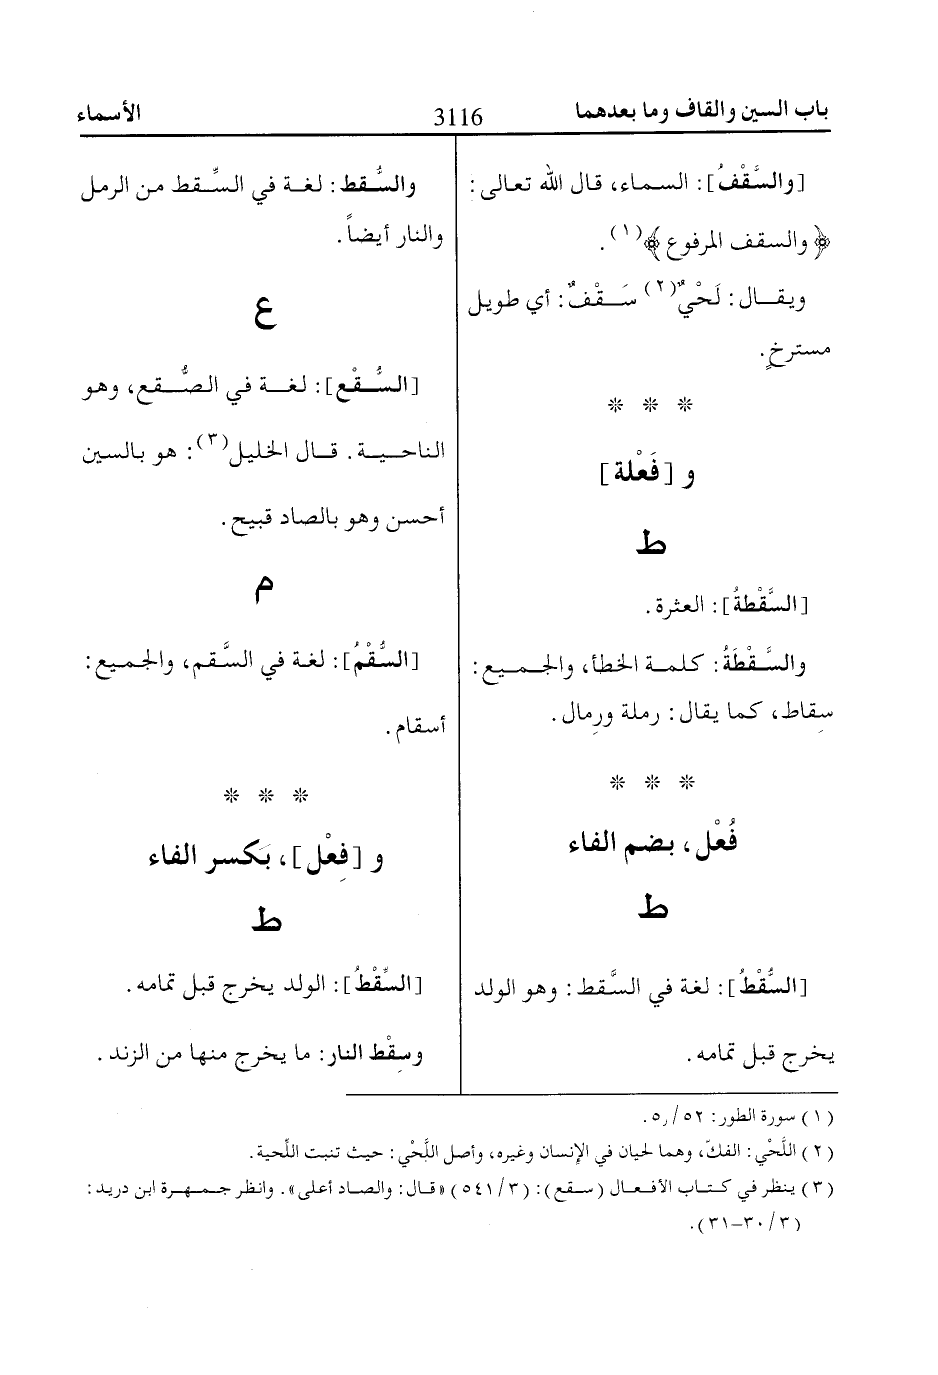 باب السين والقاف وما بعدهما
3116
الأسماء
[والسَّقْفُ]: السماء، قال الله تعالى:
﴿والسقف المرفوع﴾(١).
ويقــال: لَحْيٌ(٢) سَــقْفٌ: أي طويل
مسترخٍ.
* * *
و [فَعْلة]
ط
[السَّقْطةُ]: العثرة.
والسَّقْطَةُ: كلمة الخطأ، والجميع:
سِقاط، كما يقال: رملة ورِمال.
* * *
فُعْل، بضم الفاء
ط
[السُّقْطُ]: لغة في السَّقط: وهو الولد
يخرج قبل تمامه.
والسُّقط: لغة في السِّقط من الرمل
والنار أيضاً.
ع
[السُّقْع]: لغة في الصُّقع، وهو
الناحية. قال الخليل(٣): هو بالسين
أحسن وهو بالصاد قبيح.
م
[السُّقْمُ]: لغة في السَّقم، والجميع:
أسقام.
* * *
و [فِعْل]، بَكسر الفاء
ط
[السِّقْطُ]: الولد يخرج قبل تمامه.
وسِقْط النار: ما يخرج منها من الزند.
(١) سورة الطور: ٥٢/٥.
(٢) اللَّحْي: الفكّ، وهما لحيان في الإنسان وغيره، وأصل اللَّحْي: حيث تنبت اللّحية.
(٣) ينظر في كتاب الأفعال (سقع): (٥٤١/٣) «قال: والصاد أعلى». وانظر جمهرة ابن دريد:
(٣/ ٣٠-٣١).